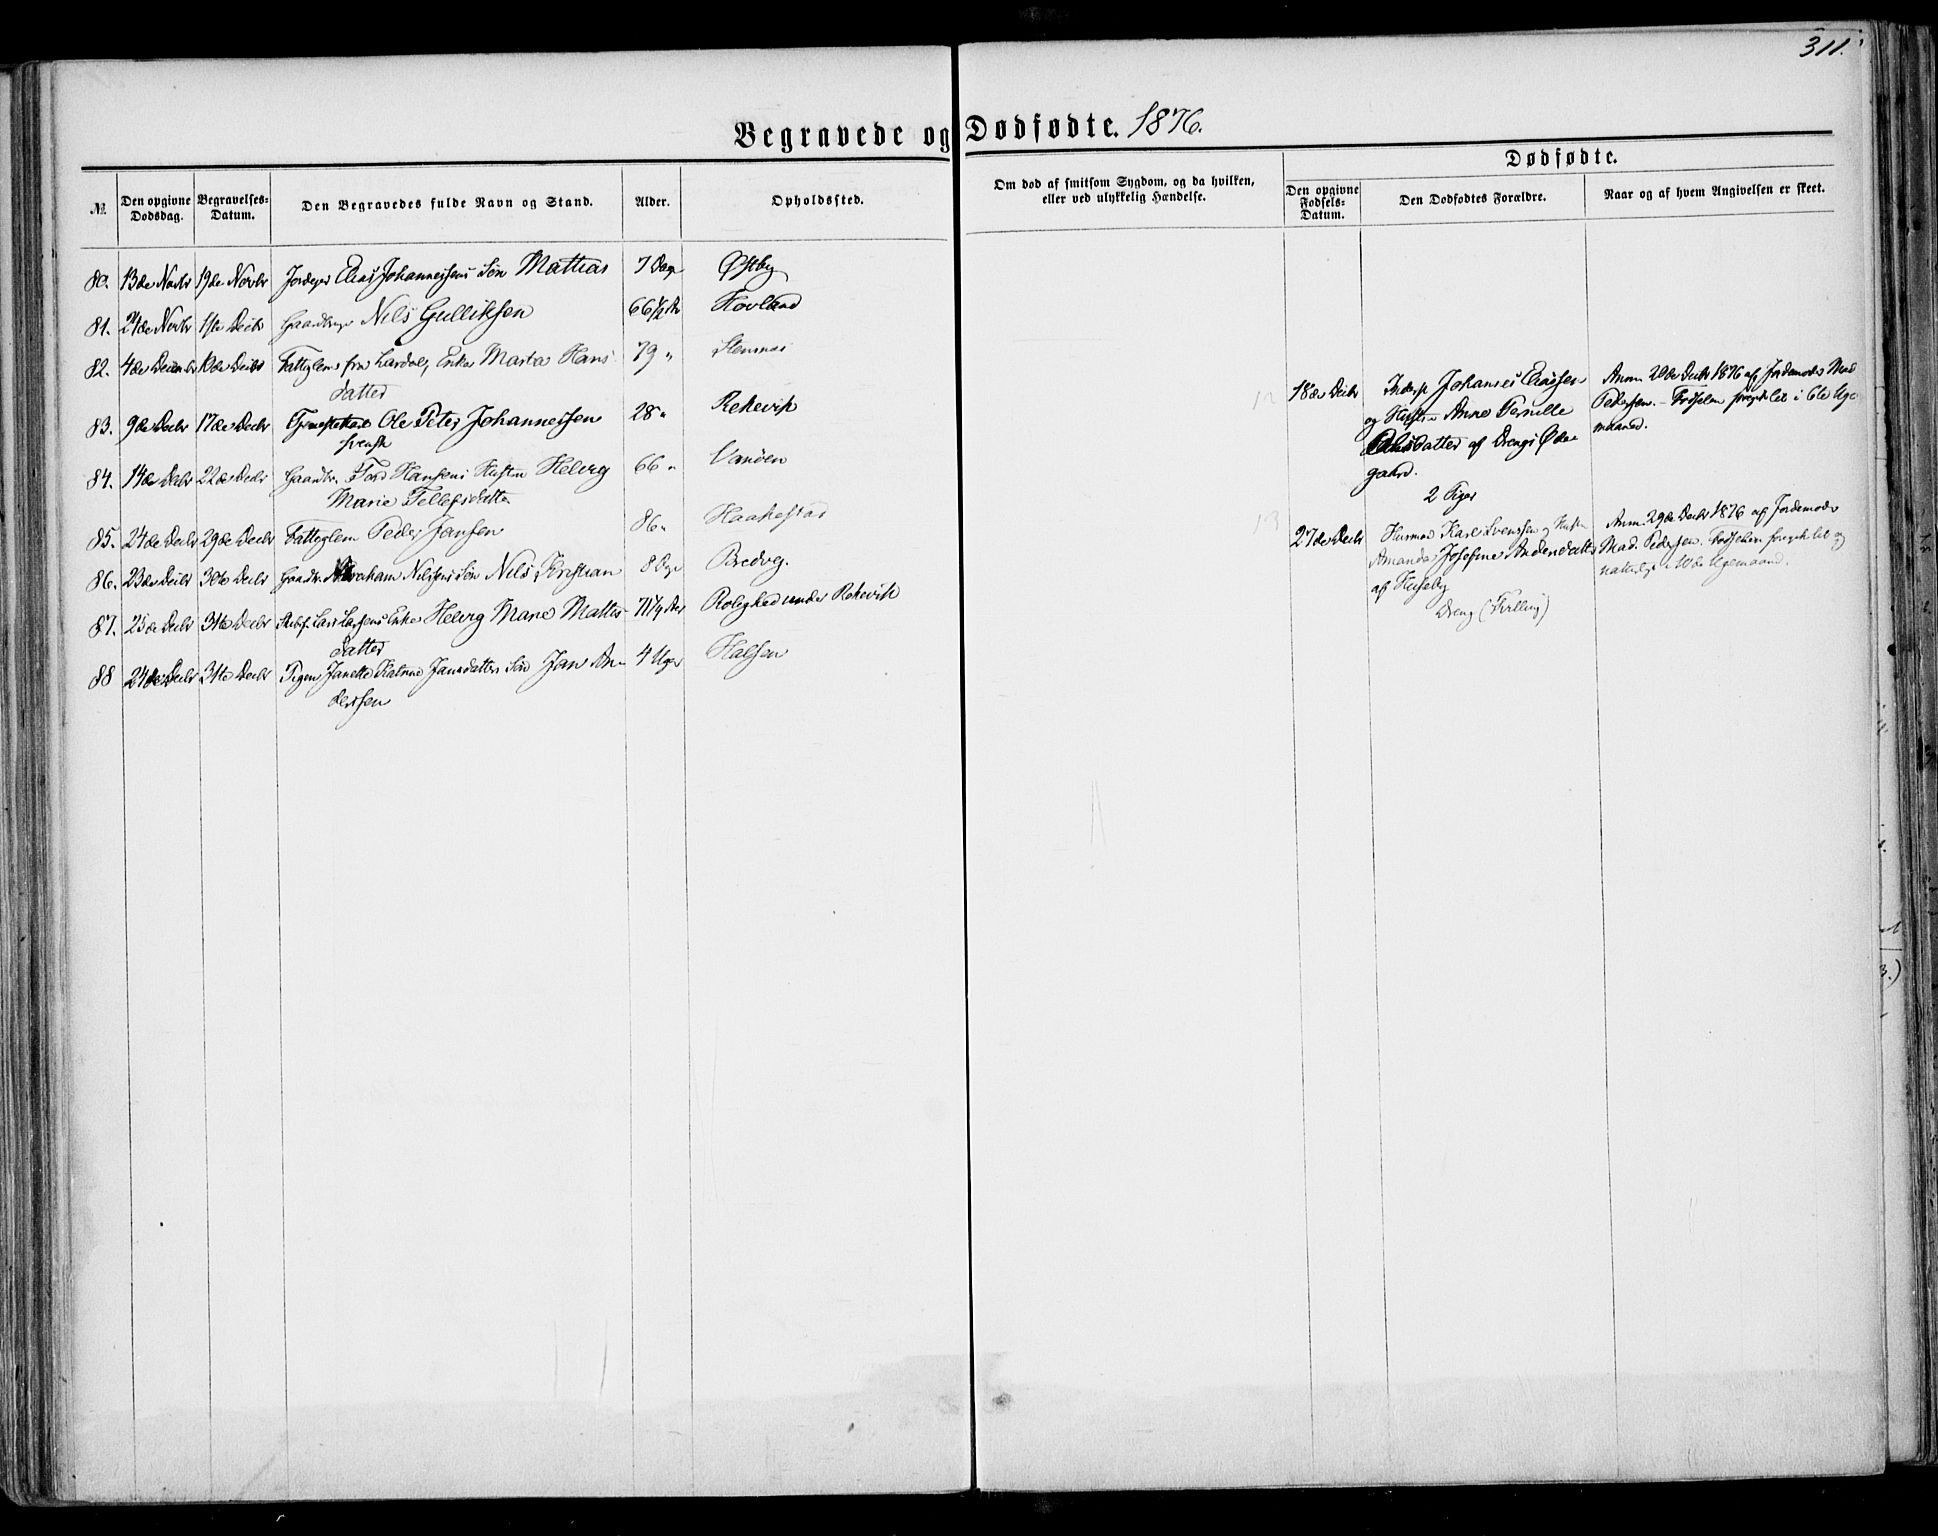 311.
Begravede og Dødfødte. 1876.
Dødfødte.
№
Den opgivne Dødsdag.
Begravelses-Datum.
Den Begravedes fulde Navn og Stand.
Alder.
Opholdssted.
Om død af smitsom Sygdom, og da hvilken, eller ved ulykkelig Hændelse.
Den opgivne Fødsels-Datum.
Den Dødfødtes Forældre.
Naar og af hvem Angivelsen er skeet.
80. 13de Novbr 19de Novbr Elias Johannessens Søn Mathias 7 Dage Østby
81. 24de Novbr 1ste Decbr Gaardbr Nils Gulliksen 66 1/2 Aar Hovland
82. 4de Decembr 10de Decbr Fattiglem fra Lardal, Enke Marta Hans- 79 "
datter
83. 9de Decbr 17de Decbr Ole Peter Johannessen 28 " Rekevik
svensk
84. 14de Decbr 22de Decbr Gaardbr. Tord Hansens Hustru Helvig 66 "
Marie Tellefsdatter
85. 24de Decbr 29de Decbr Fattiglem Peder Jansen 86 " Haakestad
86. 23de Decbr 30te Decbr Gaardbr. Abraham Nilsens Søn Nils Kristian 8 Dge
87. 25de Decbr 31te Decbr Lars Larsens Enke Helvig Marie Mathis- Rolighed under Rekevik
datter
88 24de Decbr 31te Decbr Pigen Janette Katrine Jansdatters Søn Jan An- 4 Uger Halsen
derssen
12 18de Decbr Inderst Johannes Eliassen
og Hustru Anne Pernille
datter af Drengs Øde-
gaard.
2 Piger
Anm. 20de Decbr 1876 af Jordemoder Mad
Pedersen. - Fødselen foregik let i 6te Uge
maaned.
13 27de Decbr Husmd Karl Svenssen og Hustru
Amanda Josefine Andersdatter
af Huseby
Dreng (Tvilling)
Anm. 29de Decbr 1876 af Jordemoder
Mad. Pedersen. Fødselen foregik let og
naturlig i 10de Ugemaaned.